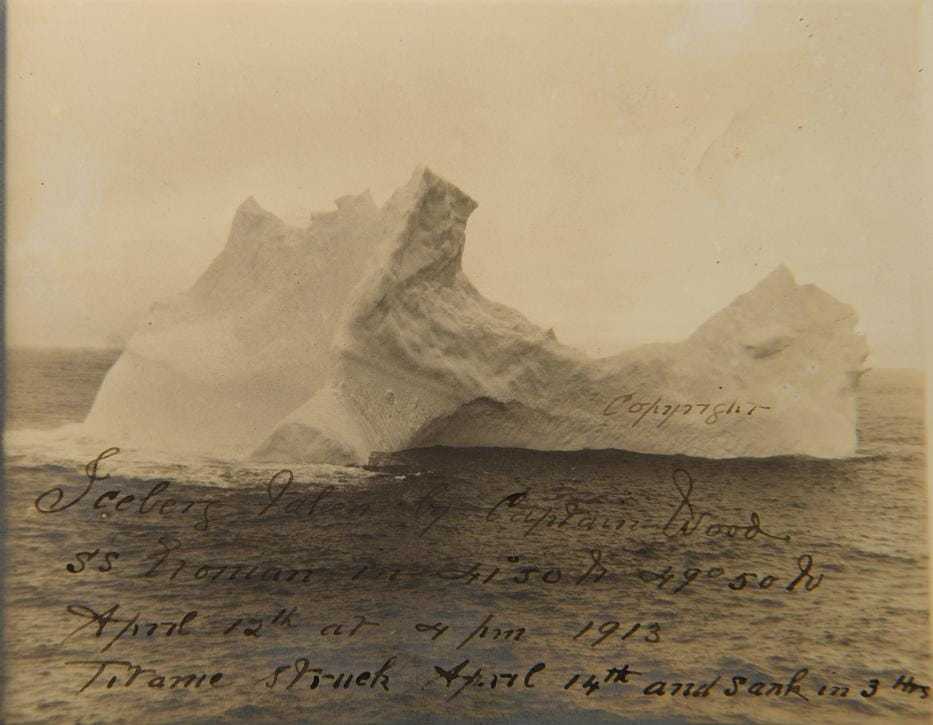 Copyright
Iceberg Taken by Captain Wood.
SS in 41°50 N 49°50 W
April 12th at 4 pm 1913
Titanic struck April 14th and sank in 3 Hrs